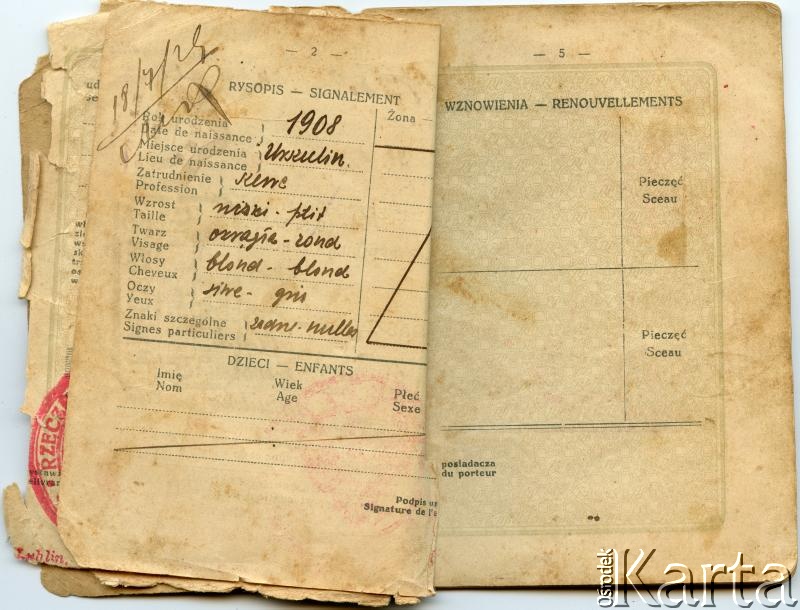 — 2 —
18/7/25
RYSOPIS — SIGNALEMENT
Rok urodzenia
Date de naissance
1908
Żona —
Miejsce urodzenia
Lieu de naissance
Urszulin.
Zatrudnienie
Profession
Wzrost
Taille
niski - ptit
Twarz
Visage
okrągła - rond
Włosy
Cheveux
blond - blond
Oczy
Yeux
siwe - gris
Znaki szczególne
Signes particuliers
żadne - nulles
DZIECI — ENFANTS
Imię
Nom
Wiek
Age
Płeć
Sexe
Podpis
Signature de l'
RZECZ
Lublin,
— 5 —
WZNOWIENIA — RENOUVELLEMENTS
Pieczęć
Sceau
Pieczęć
Sceau
posiadacza
du porteur
ośrodek
Karta